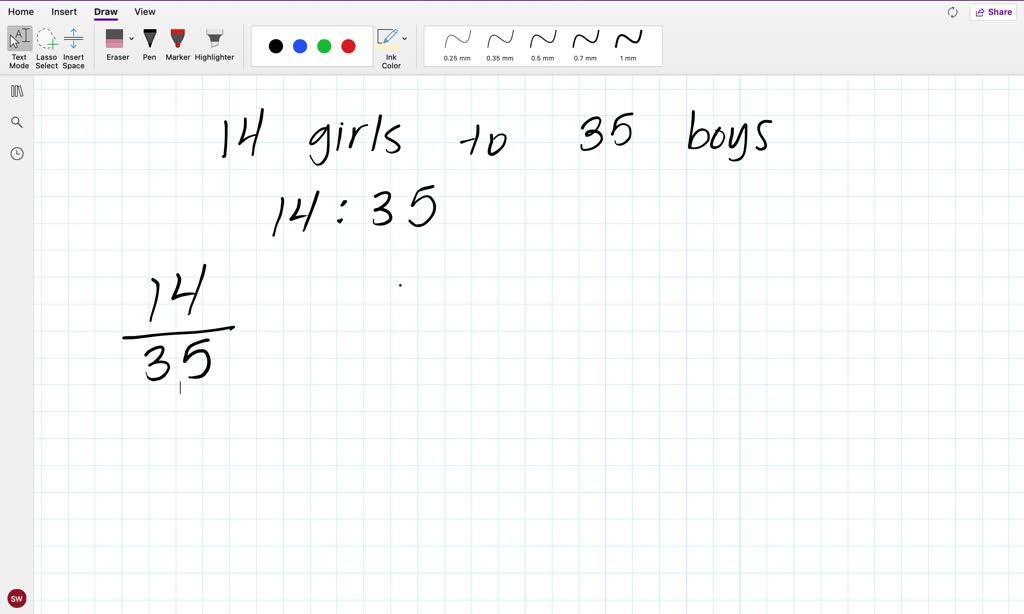 Home Insert Draw View
Share
Text Mode
Lasso Select
Insert Space
Eraser
Pen
Marker
Highlighter
Ink Color
0.25 mm
0.35 mm
0.5 mm
0.7 mm
1 mm
14 girls to 35 boys
14 : 35
14
35
SW